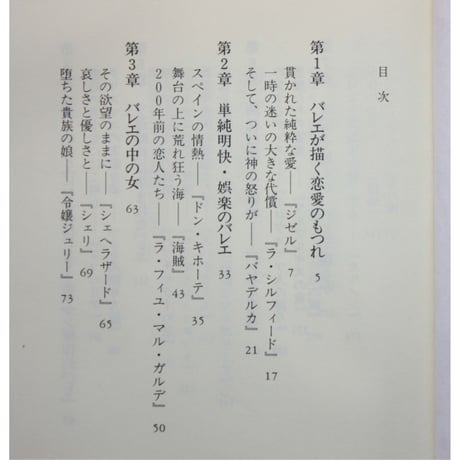 目次
第1章 バレエが描く恋愛のもつれ 5
貫かれた純粋な愛——『ジゼル』 7
一時の迷いの大きな代償——『ラ・シルフィード』 17
そして、ついに神の怒りが——『バヤデルカ』 21
第2章 単純明快・娯楽のバレエ 33
スペインの情熱——『ドン・キホーテ』 35
舞台の上に荒れ狂う海——『海賊』 43
200年前の恋人たち——『ラ・フィユ・マル・ガルデ』 50
第3章 バレエの中の女 63
その欲望のままに——『シェヘラザード』 65
哀しさと優しさと——『シェリ』 69
堕ちた貴族の娘——『令嬢ジュリー』 73